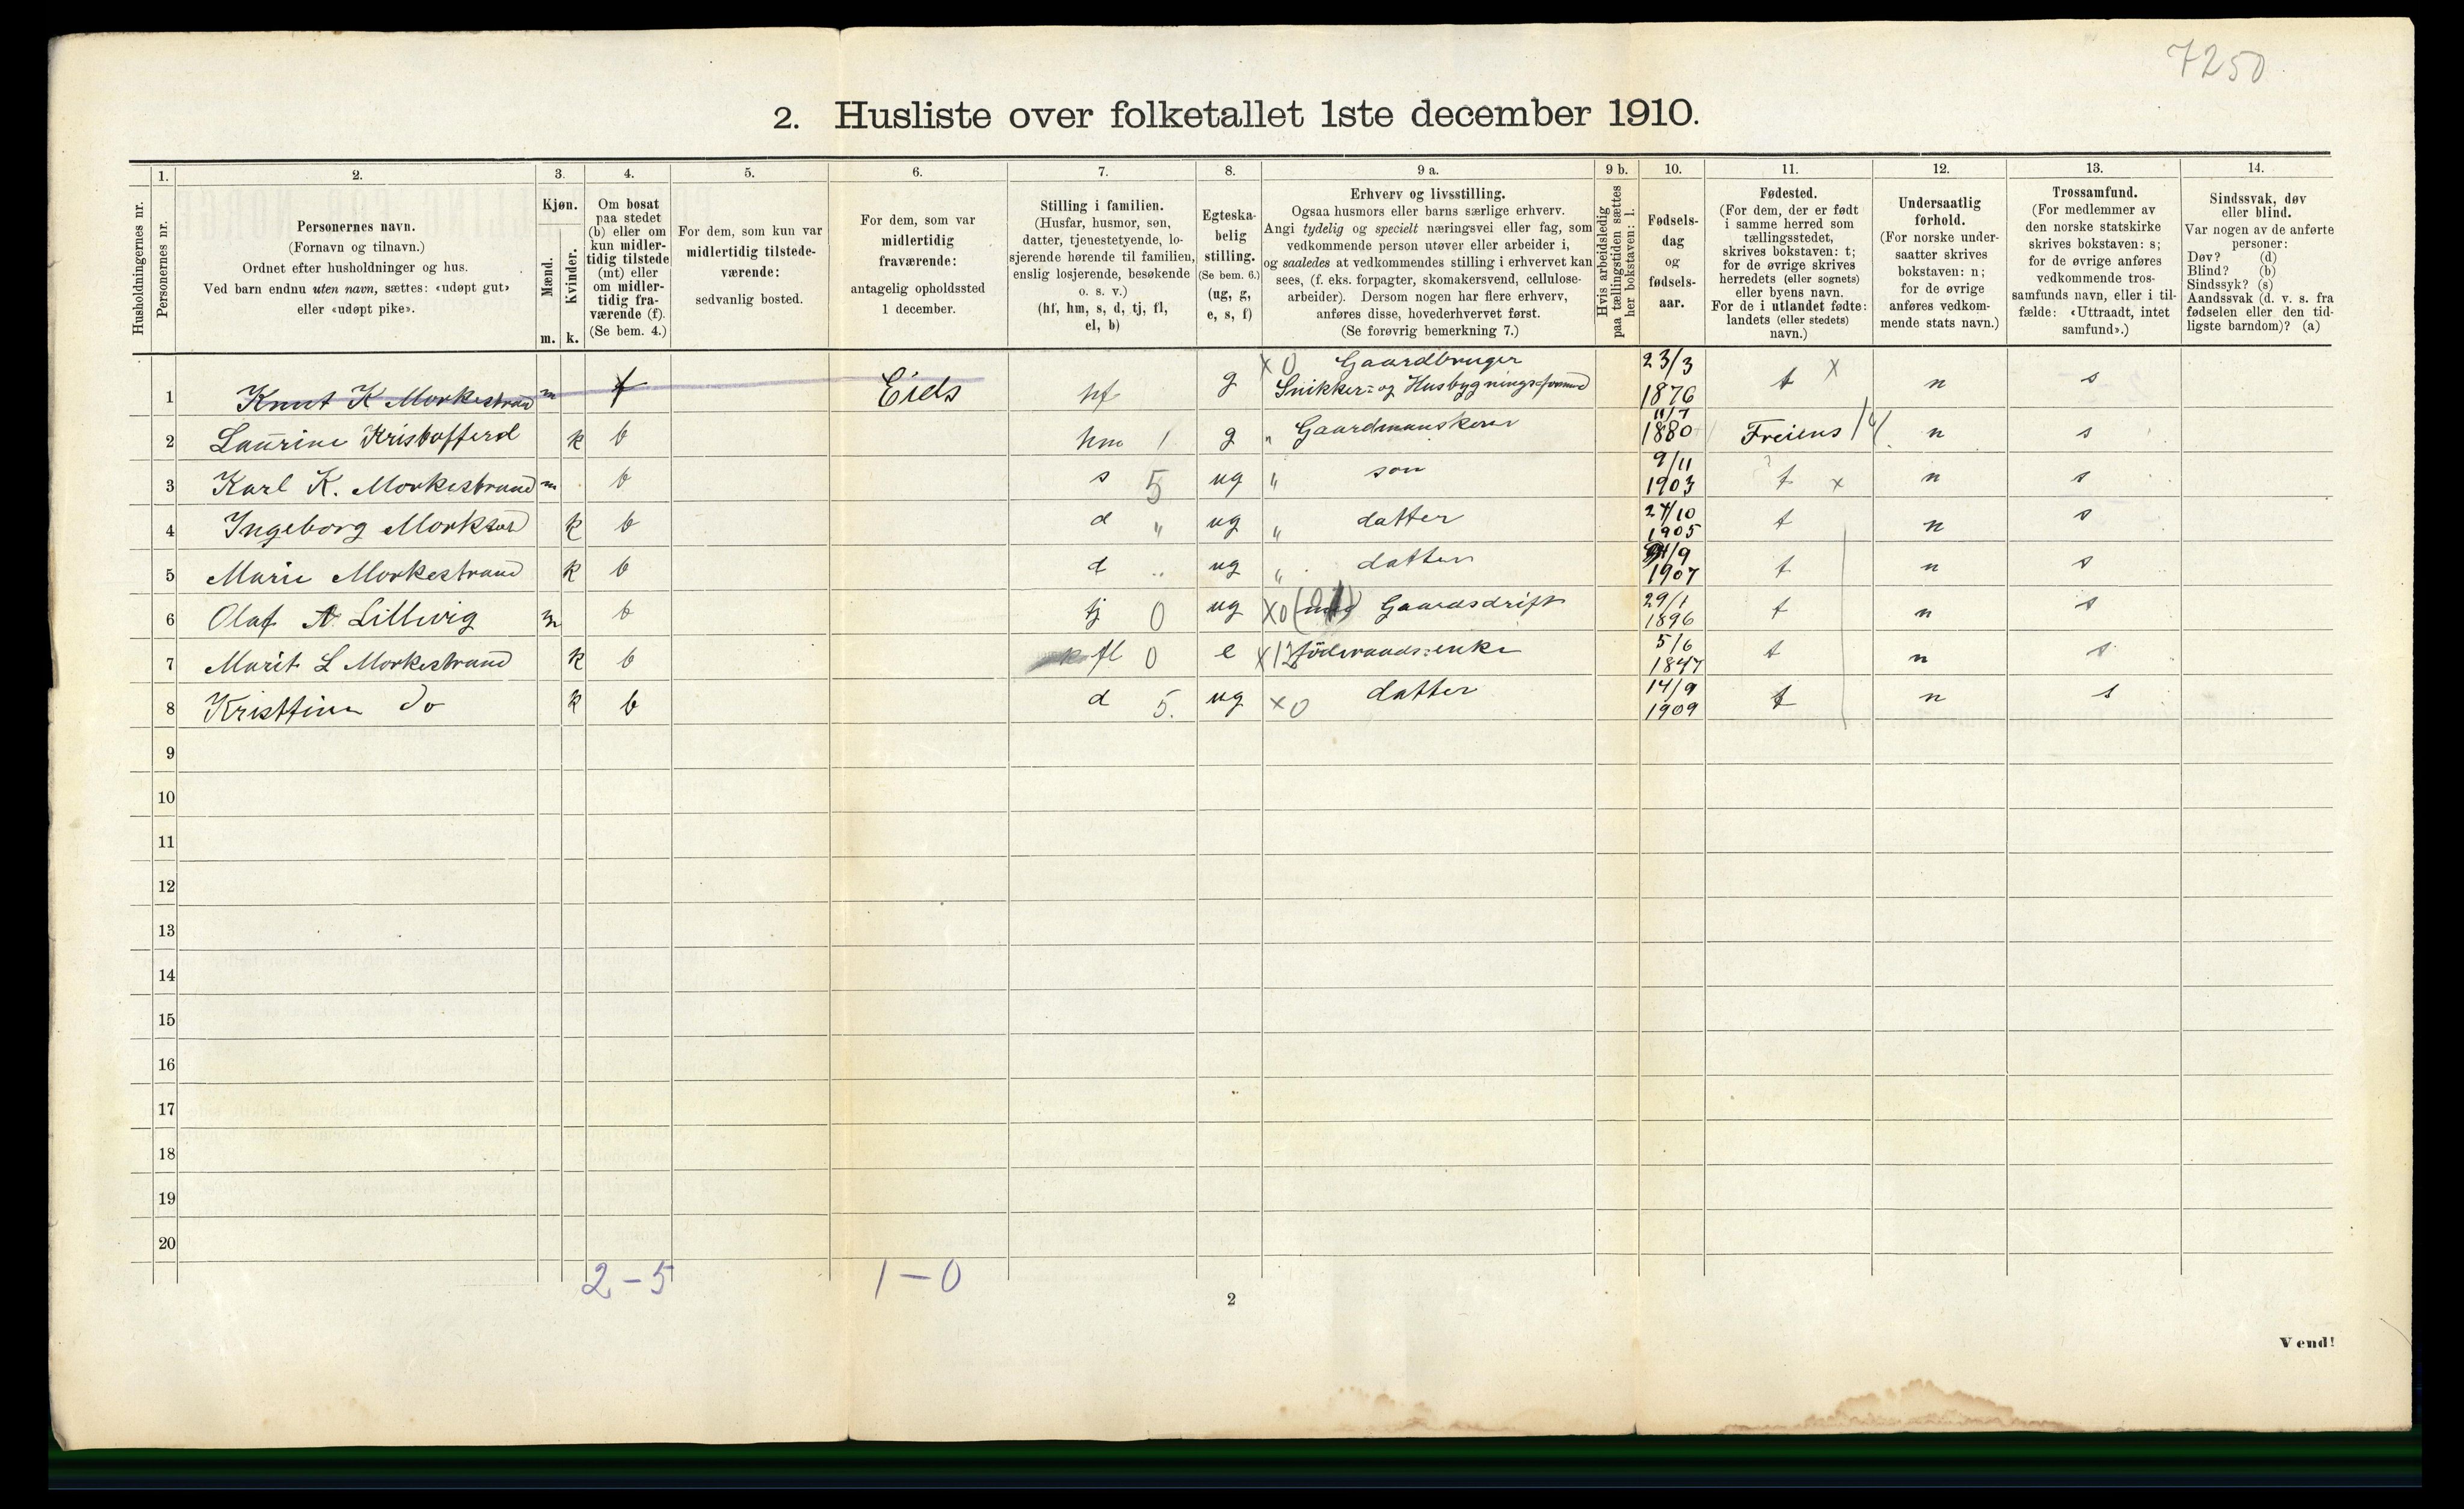 7250
2. Husliste over folketallet 1ste december 1910.
Husholdningernes nr.
1. Personernes nr.
2. Personernes navn.
(Fornavn og tilnavn.)
Ordnet efter husholdninger og hus.
Ved barn endnu uten navn, sættes: «udøpt gut»
eller «udøpt pike».
3. Kjøn.
Mænd. Kvinder.
m. k.
4. Om bosat
paa stedet
(b) eller om
kun midler-
tidig tilstede
(mt) eller
om midler-
tidig fra-
værende (f).
(Se bem. 4.)
5. For dem, som kun var
midlertidig tilstede-
værende:
sedvanlig bosted.
6. For dem, som var
midlertidig
fraværende:
antagelig opholdssted
1 december.
7. Stilling i familien.
(Husfar, husmor, søn,
datter, tjenestetyende, lo-
sjerende hørende til familien,
enslig losjerende, besøkende
o. s. v.)
(hf, hm, s, d, tj, fl,
el, b)
8. Egteska-
belig
stilling.
(Se bem. 6.)
(ug, g,
e, s, f)
9 a. Erhverv og livsstilling.
Ogsaa husmors eller barns særlige erhverv.
Angi tydelig og specielt næringsvei eller fag, som
vedkommende person utøver eller arbeider i,
og saaledes at vedkommendes stilling i erhvervet kan
sees, (f. eks. forpagter, skomakersvend, cellulose-
arbeider). Dersom nogen har flere erhverv,
anføres disse, hovederhvervet først.
(Se forøvrig bemerkning 7.)
9 b. Hvis arbeidsledig
paa tællingstiden sættes
her bokstaven: l.
10. Fødsels-
dag
og
fødsels-
aar.
11. Fødested.
(For dem, der er født
i samme herred som
tællingsstedet,
skrives bokstaven: t;
for de øvrige skrives
herredets (eller sognets)
eller byens navn.
For de i utlandet fødte:
landets (eller stedets)
navn.)
12. Undersaatlig
forhold.
(For norske under-
saatter skrives
bokstaven: n;
for de øvrige
anføres vedkom-
mende stats navn.)
13. Trossamfund.
(For medlemmer av
den norske statskirke
skrives bokstaven: s;
for de øvrige anføres
vedkommende tros-
samfunds navn, eller i til-
fælde: «Uttraadt, intet
samfund».)
14. Sindssvak, døv
eller blind.
Var nogen av de anførte
personer:
Døv? (d)
Blind? (b)
Sindssyk? (s)
Aandssvak (d. v. s. fra
fødselen eller den tid-
ligste barndom)? (a)
1 Knut K Morkestrand m f Eids hf g x0 Gaardbruger Snikker- og Husbygnings 23/3 1876 t x n s
2 Laurine Kristofferd k b hm 1 g " Gaardmanskone 11/7 1880 Freiens n s
3 Karl K. Morkestrand m b s 5 ug " søn 9/11 1903 t x n s
4 Ingeborg k b d " ug " datter 27/10 1905 t n s
5 Marie Morkestrand k b d " ug " datter /9 1907 t n s
6 Olaf A Lillevig m b tj 0 ug x0 Gaardsdrift 29/1 1896 t n s
7 Marit L Morkestrand k b fl 0 e x12 föderaads-enke 5/6 1847 t n s
8 Kristtina Do k b d 5. ug x0 datter 14/9 1909 t n s
9
10
11
12
13
14
15
16
17
18
19
20
2-5 1-0
2
Vend!